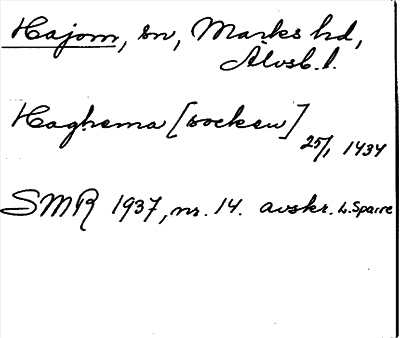 Hajom, sn, Marks hd,
Älvsb. l.
Haghema [socken]
25/1 1434
SMR 1937, nr. 14. avskr. L. Sparre